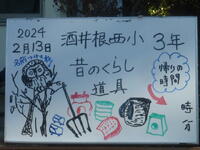 2024
2月13日
酒井根西小 3年
昔のくらし
道具
帰りの
時間
時 分